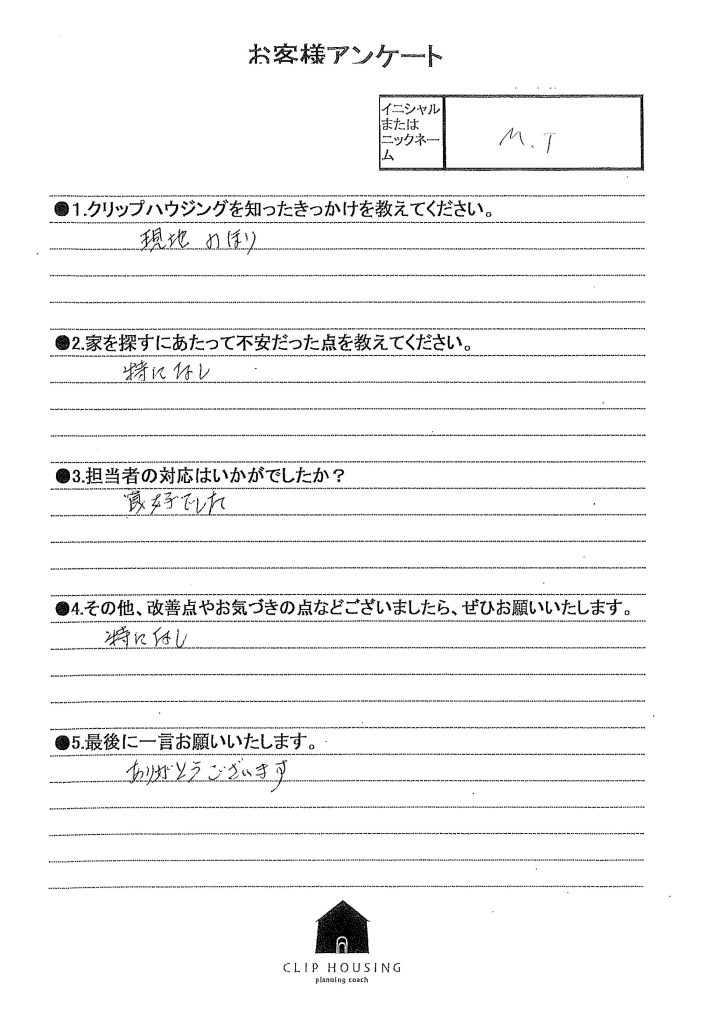 お客様アンケート
イニシャル
または
ニックネー
ム
M.T
●1.クリップハウジングを知ったきっかけを教えてください。
現地 のぼり
●2.家を探すにあたって不安だった点を教えてください。
特になし
●3.担当者の対応はいかがでしたか？
良好でした
●4.その他、改善点やお気づきの点などございましたら、ぜひお願いいたします。
特になし
●5.最後に一言お願いいたします。
ありがとうございます
CLIP HOUSING
planning coach